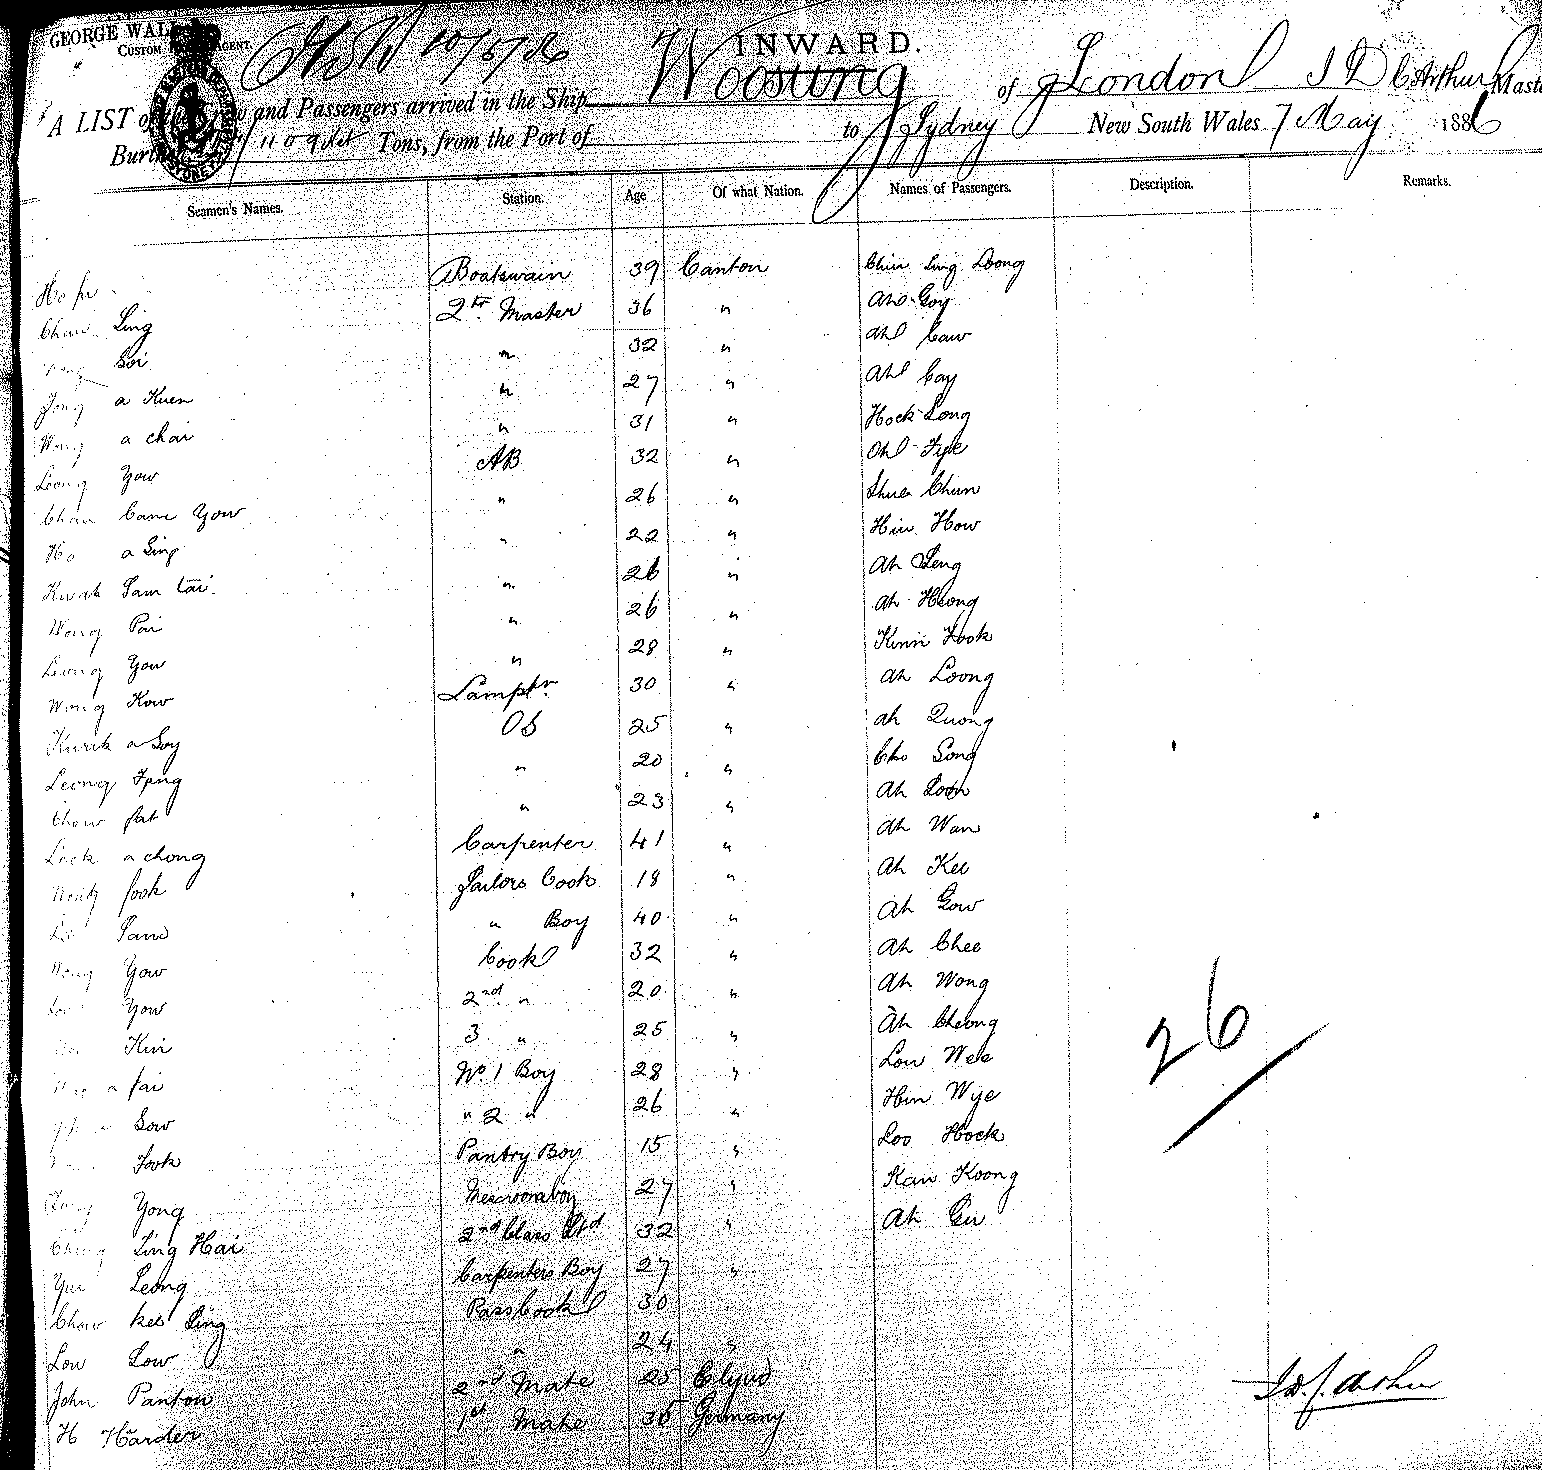 GEORGE WAL
CUSTOM AGENT.
10/5/86
INWARD.
A LIST of and Passengers arrived in the Ship Woosung of London J D C Arthur Maste
Burth 1109 Tons, from the Port of to Sydney New South Wales 7 May 1886
Seamen's Names. Station. Age Of what Nation. Names of Passengers. Description. Remarks.
Ho Boatswain 39 Canton Chin Sing Loong
Chan Sing 2 Master 36 " Ah Goy
Soi " 32 " Ah Caw
Jong a Kuen " 27 " Ah Cay
Wong a chai " 31 " Hock Long
Leong Yow AB 32 " Ah Fye
Chan Cam Yow " 26 " Shue Chun
Ho a Sing " 22 " Hin How
Kwok Sam tai " 26 " Ah Leng
Wong Poi " 26 " Ah Heong
Leong Yow " 28 " Kum Fook
Wong Kow Lamptr 30 " Ah Loong
a Soy OS 25 " Ah Quong
Leong Fong " 20 " Cho Song
Chow fat " 23 " Ah Loon
Lock a chong Carpenter 41 " Ah Wan
fook Sailors Cook 18 " Ah Kee
Sam " Boy 40 " Ah Gow
Wong Yow Cook 32 " Ah Chee
Yow 2nd " 20 " Ah Wong
Kin 3 " 25 " Ah Cheong
a fai No 1 Boy 28 " Low Wee
Sow " 2 " 26 " Hin Wye
Fook Pantry Boy 15 " Loo Hock
Yong Messroomboy 27 " Kaw Koong
Ching Ling Hai 2nd Class Std 32 " Ah Gee
Yee Leong Carpenters Boy 27 "
Chow kee Sing Pass Cook 30
Low Low " 24 "
John Panton 2nd Mate 25
H Harder 1st Mate 36 Germany
26